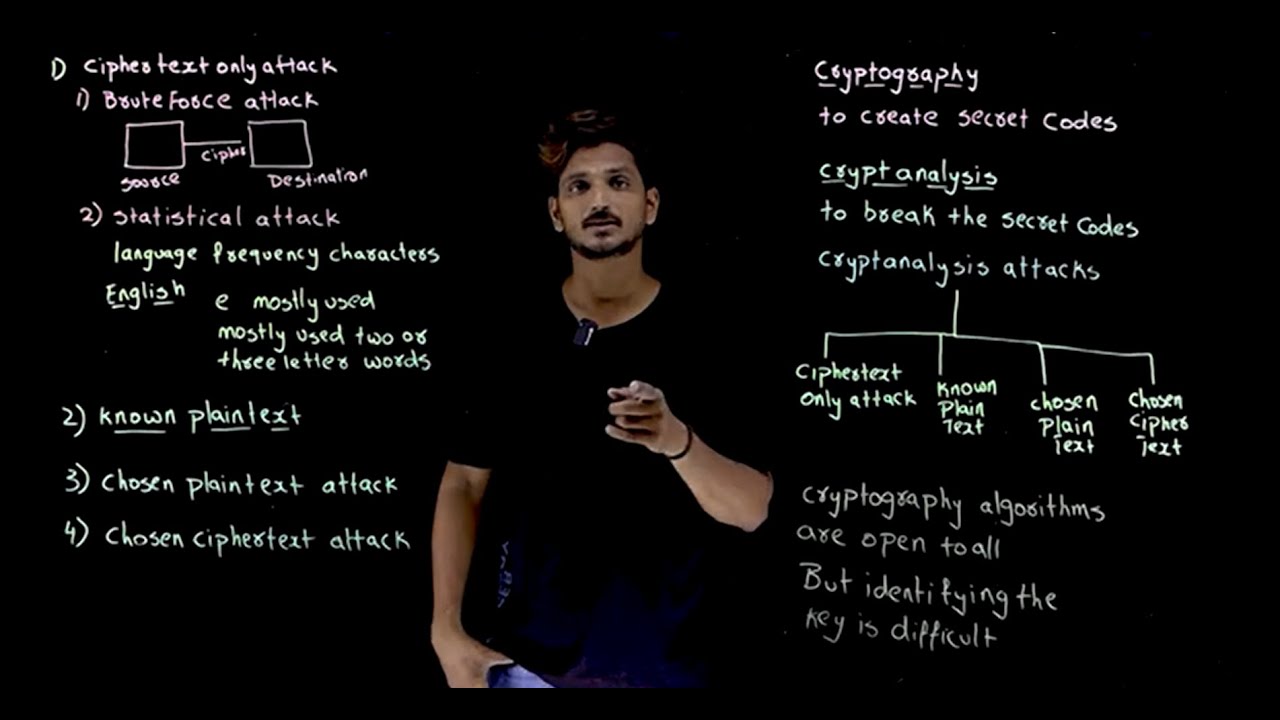 1) Ciphertext only attack
1) Brute Force attack
Cipher
Source Destination
2) Statistical attack
language frequency characters
English e mostly used
mostly used two or
three letter words
2) Known plaintext
3) Chosen plaintext attack
4) Chosen ciphertext attack
Cryptography
to create secret Codes
cryptanalysis
to break the secret Codes
cryptanalysis attacks
Ciphertext
Only attack
Known
Plain
Text
Chosen
Plain
Text
Chosen
Cipher
Text
Cryptography algorithms
are open to all
But identifying the
key is difficult